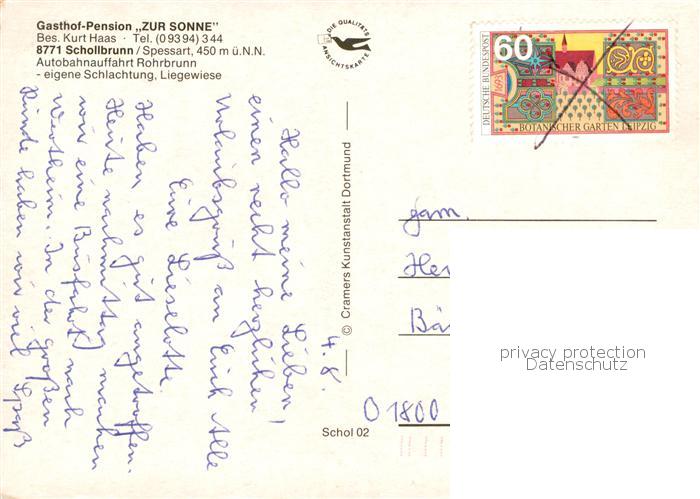 Gasthof-Pension „ZUR SONNE"
Bes. Kurt Haas · Tel. (0 93 94) 3 44
8771 Schollbrunn / Spessart, 450 m ü.N.N.
Autobahnauffahrt Rohrbrunn
- eigene Schlachtung, Liegewiese
DIE QUALITÄTS
ANSICHTSKARTE
DEUTSCHE BUNDESPOST
60
BOTANISCHER GARTEN LEIPZIG
4. 8.
Hallo meine Lieben,
einen recht herzlichen
Urlaubsgruß an Euch Alle
Eure Lieselotte.
Haben es gut angetroffen.
Heute nachmittag machen
wir eine Busfahrt nach
Wertheim. In der großen
Runde haben wir viel Spaß
© Cramers Kunstanstalt Dortmund
Schol 02
Fam.
Her
Bä
O 1800
privacy protection
Datenschutz